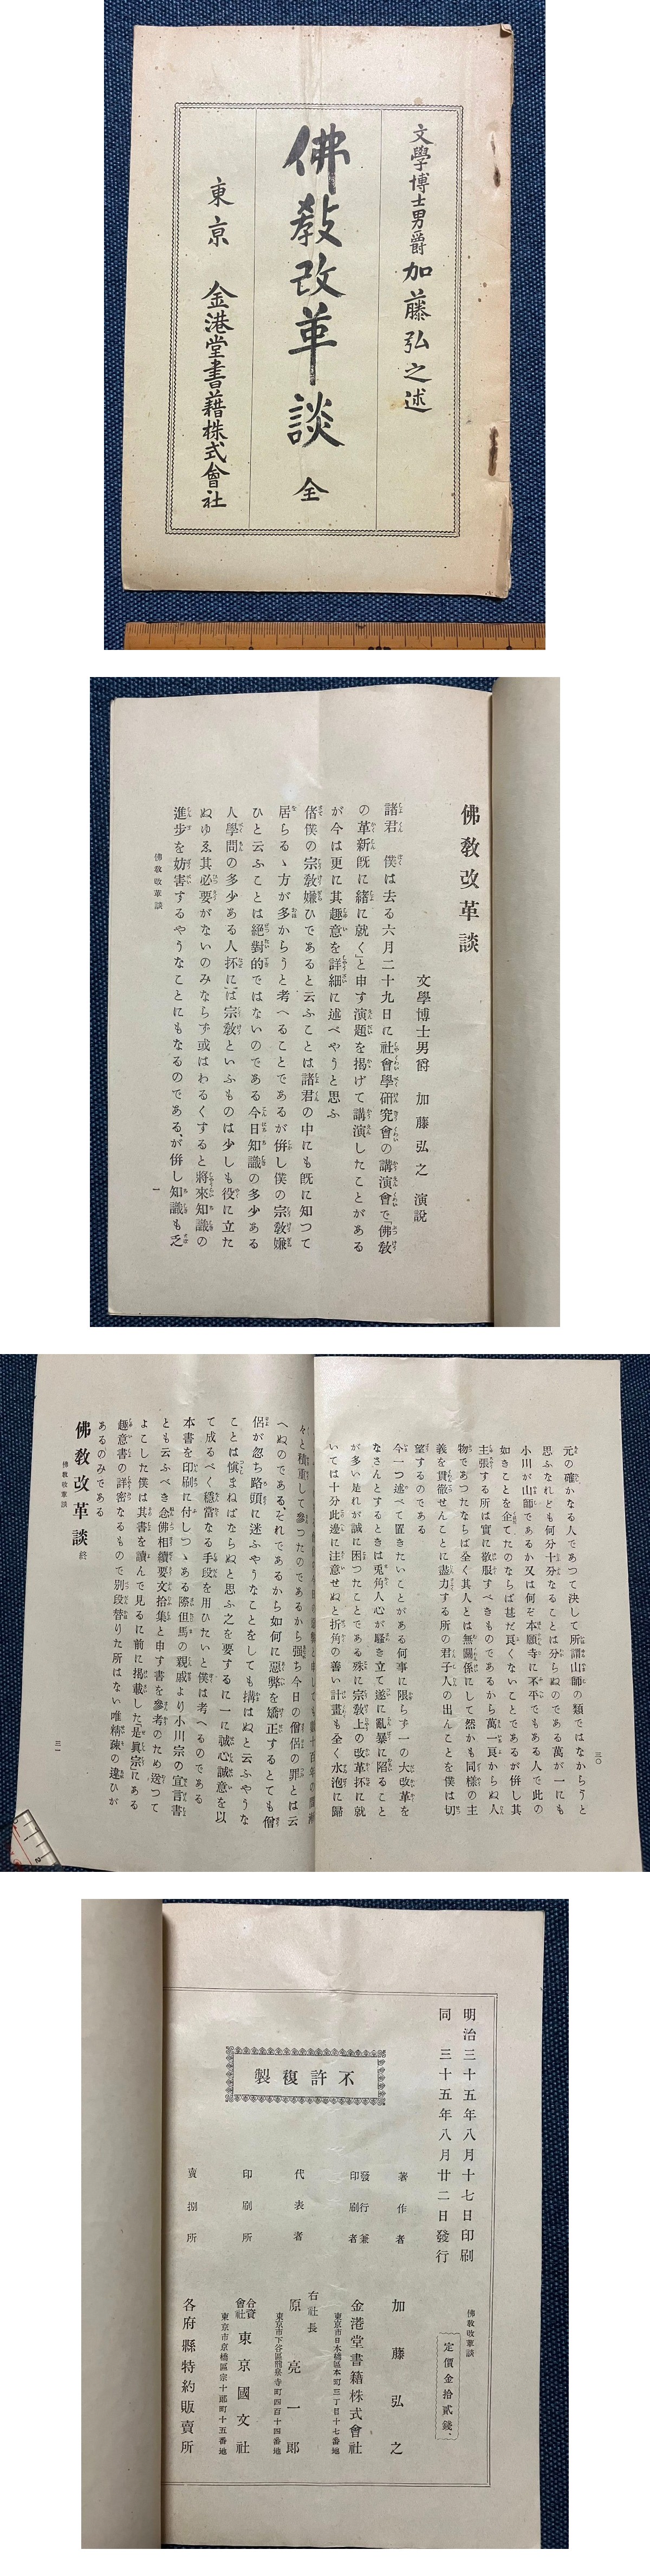 文學博士男爵 加藤弘之述
佛教改革談 全
東京 金港堂書籍株式會社
佛教改革談
文學博士男爵 加藤弘之 演説
諸君 僕は去る六月二十九日に社會學研究會の講演會で「佛教
の革新既に緒に就く」と申す演題を掲げて講演したことがある
が今は更に其趣意を詳細に述べやうと思ふ
偖僕の宗教嫌ひであると云ふことは諸君の中にも既に知つて
居らるゝ方が多からうと考へることであるが併し僕の宗教嫌
ひと云ふことは絶對的ではないのである今日知識の多少ある
人學問の多少ある人抔には宗教といふものは少しも役に立た
ぬゆゑ其必要がないのみならず或はわるくすると將來知識の
進歩を妨害するやうなことにもなるのであるが併し知識も乏
佛教改革談
一
元の確かなる人であつて決して所謂山師の類ではなからうと
思ふなれども何分十分なることは分らぬのである萬が一にも
小川が山師であるか又は何ぞ本願寺に不平でもある人で此の
如きことを企てたのならば甚だ良くないことであるが併し其
主張する所は實に敬服すべきものであるから萬一良からぬ人
物であつたならば全く其人とは無關係にして然かも同樣の主
義を貫徹せんことに盡力する所の君子人の出んことを僕は切
望するのである
今一つ述べて置きたいことがある何事に限らず一の大改革を
なさんとするときは兎角人心が騒き立て遂に亂暴に陷ること
が多い是れが誠に困つたことである殊に宗教上の改革抔に就
いては十分此邊に注意せぬと折角の善い計畫も全く水泡に歸
三〇
々と積重して參つたのであるから強ち今日の僧侶の罪とは云
へぬのである、それであるから如何に惡弊を矯正するとても僧
侶が忽ち路頭に迷ふやうなことをしても搆はぬと云ふやうな
ことは愼まねばならぬと思ふ之を要するに一に誠心誠意を以
て成るべく穩當なる手段を用ひたいと僕は考へるのである
本書を印刷に付しつゝある際但馬の親戚より小川宗の宣言書
とも云ふべき念佛相續要文拾集と申す書を參考のため送つて
よこした僕は其書を讀んで見るに前に掲載した是眞宗にある
趣意書の詳密なるもので別段替りた所はない唯精疎の違ひが
あるのみである
佛教改革談 終
佛教改革談
三一
明治三十五年八月十七日印刷
同 三十五年八月廿二日發行
佛教改革談
定價金拾貳錢
不許複製
著作者 加藤弘之
發行兼印刷者 金港堂書籍株式會社
東京市日本橋區本町三丁目十七番地
代表者 右社長 原亮一郎
東京市下谷區龍泉寺町四百十四番地
印刷所 合資會社 東京國文社
東京市京橋區宗十郎町十五番地
賣捌所 各府縣特約販賣所